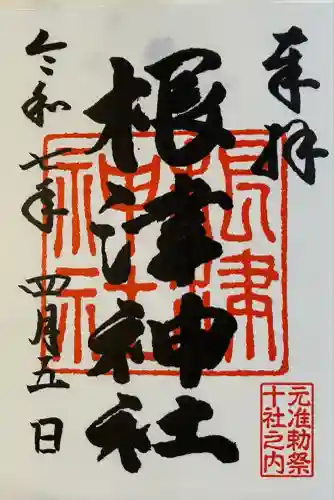 奉拝
根津神社
令和七年 四月五日
根津神社
元准勅祭
十社之内